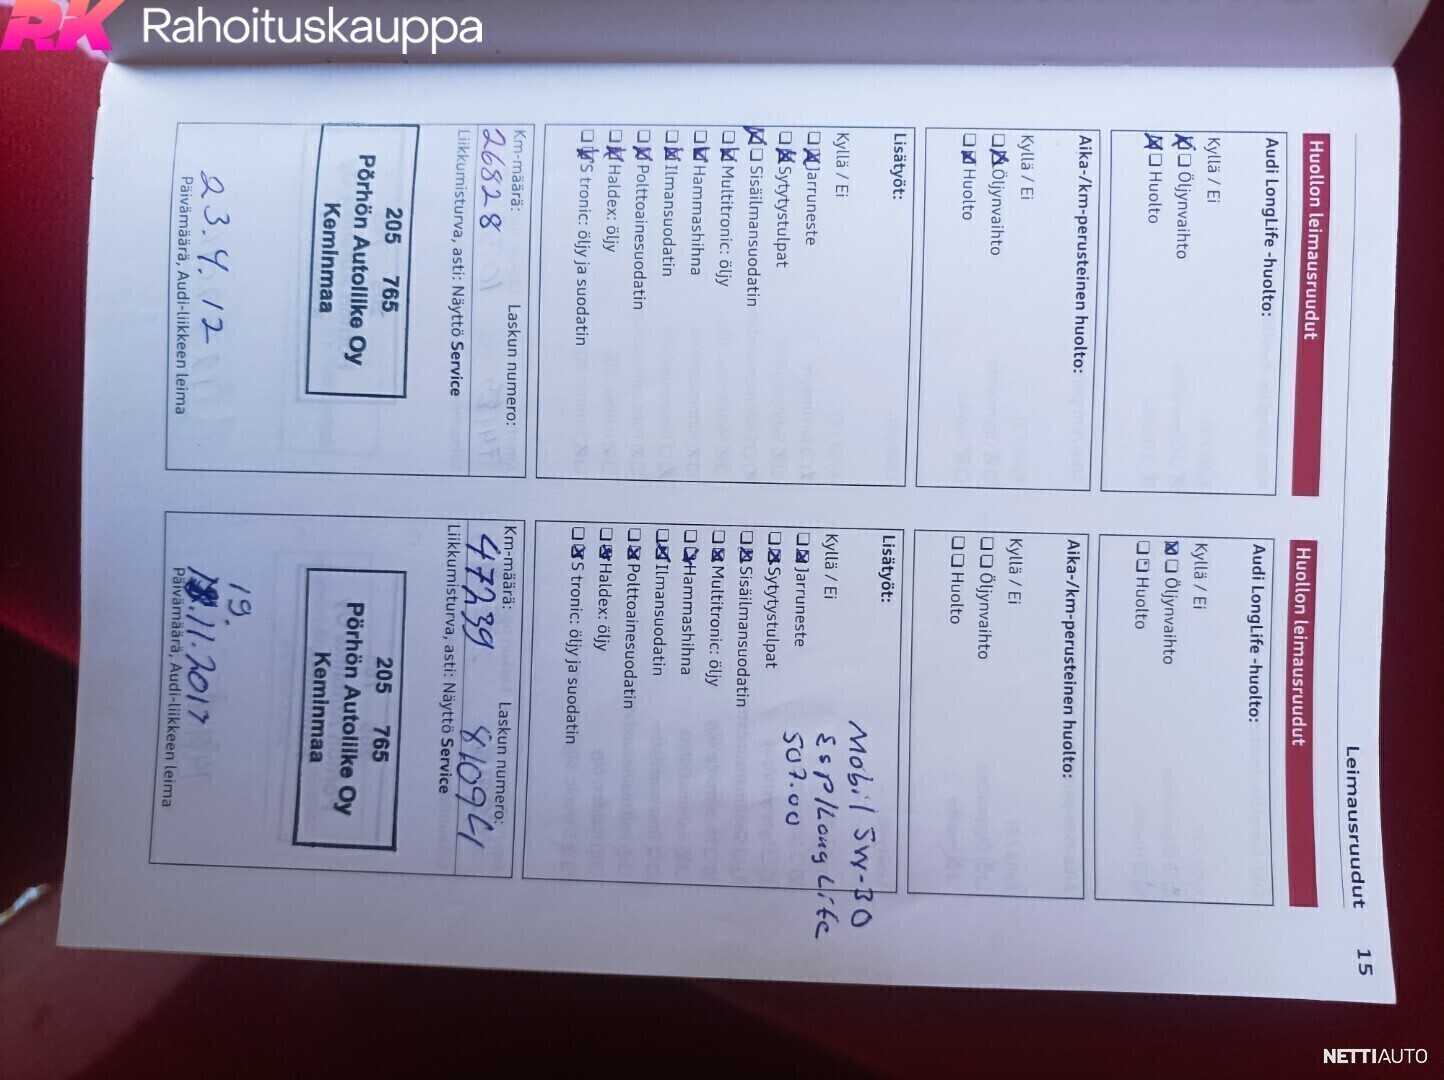 RK Rahoituskauppa
Leimausruudut 15
Huollon leimausruudut
Audi LongLife -huolto:
Kyllä / Ei
Öljynvaihto
Huolto
Aika-/km-perusteinen huolto:
Kyllä / Ei
Öljynvaihto
Huolto
Lisätyöt:
Kyllä / Ei
Jarruneste
Sytytystulpat
Sisäilmansuodatin
Multitronic: öljy
Hammashihna
Ilmansuodatin
Polttoainesuodatin
Haldex: öljy
S tronic: öljy ja suodatin
Km-määrä: Laskun numero:
26828
Liikkumisturva, asti: Näyttö Service
205 765
Pörhön Autoliike Oy
Keminmaa
23.4.12
Päivämäärä, Audi-liikkeen leima
Huollon leimausruudut
Audi LongLife -huolto:
Kyllä / Ei
Öljynvaihto
Huolto
Aika-/km-perusteinen huolto:
Kyllä / Ei
Öljynvaihto
Huolto
Lisätyöt:
Mobil 5W-30
ESP/Long Life
507.00
Kyllä / Ei
Jarruneste
Sytytystulpat
Sisäilmansuodatin
Multitronic: öljy
Hammashihna
Ilmansuodatin
Polttoainesuodatin
Haldex: öljy
S tronic: öljy ja suodatin
Km-määrä: Laskun numero:
47239
Liikkumisturva, asti: Näyttö Service
205 765
Pörhön Autoliike Oy
Keminmaa
19.
Päivämäärä, Audi-liikkeen leima
NETTIAUTO